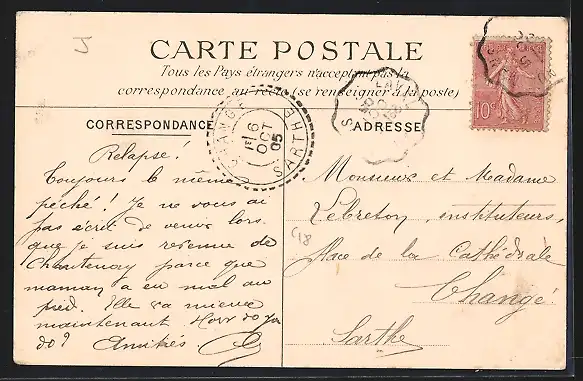 J
CARTE POSTALE
Tous les Pays étrangers n'acceptant pas la
correspondance au recto (se renseigner à la poste)
CORRESPONDANCE
ADRESSE
CHANGÉ
6
OCT
05
SARTHE
10c
Relapse!
Toujours le même
péché! Je ne vous ai
pas écrit de venir lors
que je suis revenue de
Chantenay parce que
maman a eu mal au
pied. Elle va mieux
maintenant. How do you
do? Amitiés.
Monsieur et Madame
Lebreton, instituteurs,
place de la Cathédrale
Changé
Sarthe